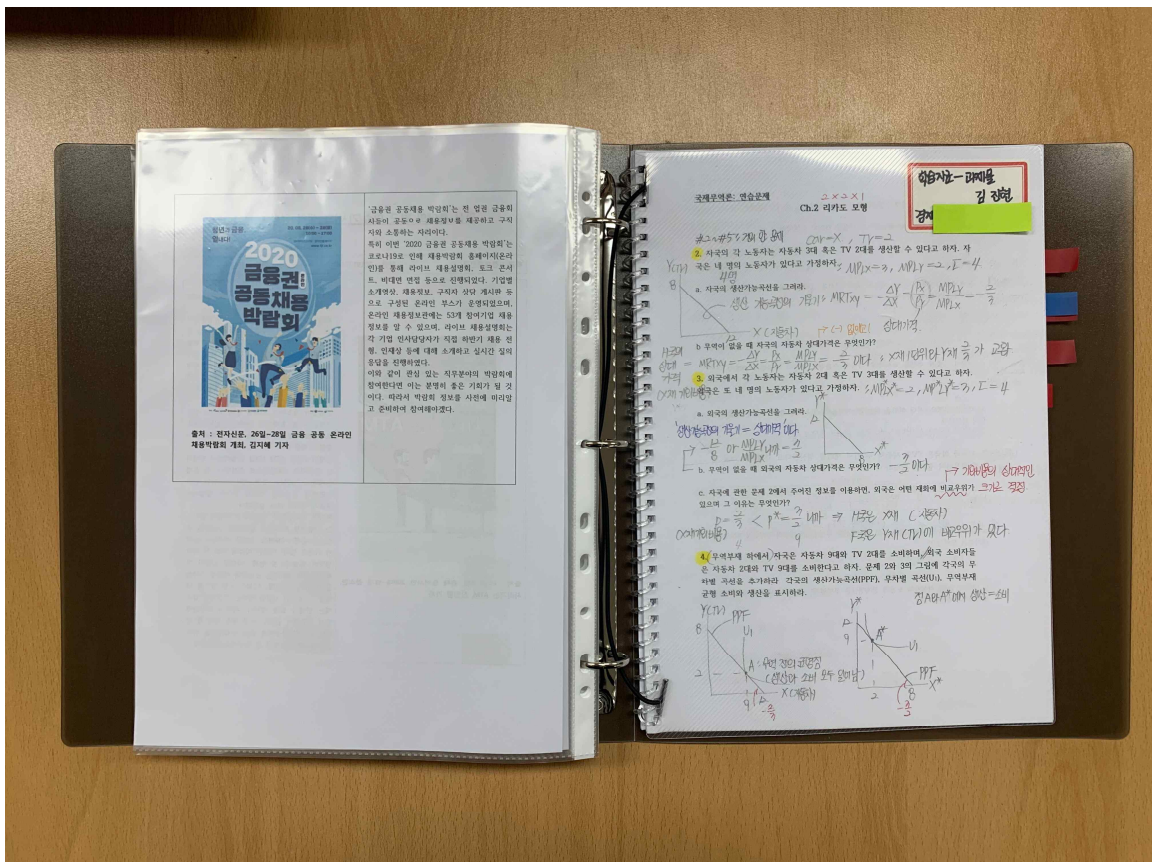 청년과 금융
열나다!
2020
금융권
공동채용
박람회
출처 : 전자신문, 26일~28일 금융 공동 온라인
채용박람회 개최, 김지혜 기자
'금융권 공동채용 박람회'는 전 업권 금융회
사들이 공동으로 채용정보를 제공하고 구직
자와 소통하는 자리이다.
특히 이번 '2020 금융권 공동채용 박람회'는
코로나19로 인해 채용박람회 홈페이지(온라
인)를 통해 라이브 채용설명회, 토크 콘서
트, 비대면 면접 등으로 진행되었다. 기업별
소개영상, 채용정보, 구직자 상담 게시판 등
으로 구성된 온라인 부스가 운영되었으며,
온라인 채용정보관에는 53개 참여기업 채용
정보를 알 수 있으며, 라이브 채용설명회는
각 기업 인사담당자가 직접 하반기 채용 전
형, 인재상 등에 대해 소개하고 실시간 질의
응답을 진행하였다.
이와 같이 관심 있는 직무분야의 박람회에
참여한다면 이는 분명히 좋은 기회가 될 것
이다. 따라서 박람회 정보를 사전에 미리알
고 준비하여 참여해야겠다.
학습자료-과제물
김 진현
경제
국제무역론: 연습문제
2×2×1
Ch.2 리카도 모형
car=X, TV=2
2. 자국의 각 노동자는 자동차 3대 혹은 TV 2대를 생산할 수 있다고 하자. 자
국은 네 명의 노동자가 있다고 가정하자. : MPLx=3, MPLy=2, L=4.
4명
a. 자국의 생산가능곡선을 그려라.
Y(TV)
8
생산 가능곡선의 기울기 : MRTxy = -ΔY/ΔX = Px/Py = MPLy/MPLx = -2/3
12
X (자동차)
(-) 없애면
상대가격
b 무역이 없을 때 자국의 자동차 상대가격은 무엇인가?
H국의
상대
가격
= MRTxy = -ΔY/ΔX = Px/Py = MPLy/MPLx = 2/3 이다 : X재 1단위와 Y재 2/3가 교환
3. 외국에서 각 노동자는 자동차 2대 혹은 TV 3대를 생산할 수 있다고 하자.
외국은 또 네 명의 노동자가 있다고 가정하자. : MPLx*=2, MPLy*=3, L=4
a. 외국의 생산가능곡선을 그려라.
Y*
12
8
X*
생산가능곡선의 기울기 = 상대가격 이다
-12/8 or MPLy/MPLx 니까 = 3/2
b. 무역이 없을 때 외국의 자동차 상대가격은 무엇인가? -3/2 이다
기회비용의 상대적인
크기로 결정
c. 자국에 관한 문제 2에서 주어진 정보를 이용하면, 외국은 어떤 재화에 비교우위가
있으며 그 이유는 무엇인가?
P=2/3 < P*=3/2 니까 ⇒ H국은 X재 (자동차)
(X재 기회비용)
F국은 Y재(TV)에 비교우위가 있다.
4. 무역부재 하에서 자국은 자동차 9대와 TV 2대를 소비하며, 외국 소비자들
은 자동차 2대와 TV 9대를 소비한다고 하자. 문제 2와 3의 그림에 각국의 무
차별 곡선을 추가하라 각국의 생산가능곡선(PPF), 무차별 곡선(U₁), 무역부재
균형 소비와 생산을 표시하라.
점 A와 A*에서 생산=소비
Y(TV)
PPF
8
U₁
2
A : 무역 전의 균형점
(생산과 소비 모두 일어남)
9
12
X(자동차)
-2/3
Y*
12
9
A*
U₁
PPF
2
8
X*
-3/2